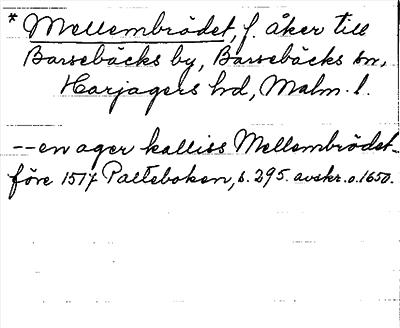 * Mellembrödet, f. åker till
Barsebäcks by, Barsebäcks sn,
Harjagers hd, Malm. l.
-- en ager kalliss Mellembrödet_
före 1517 Palteboken, s. 295. avskr. o. 1650.